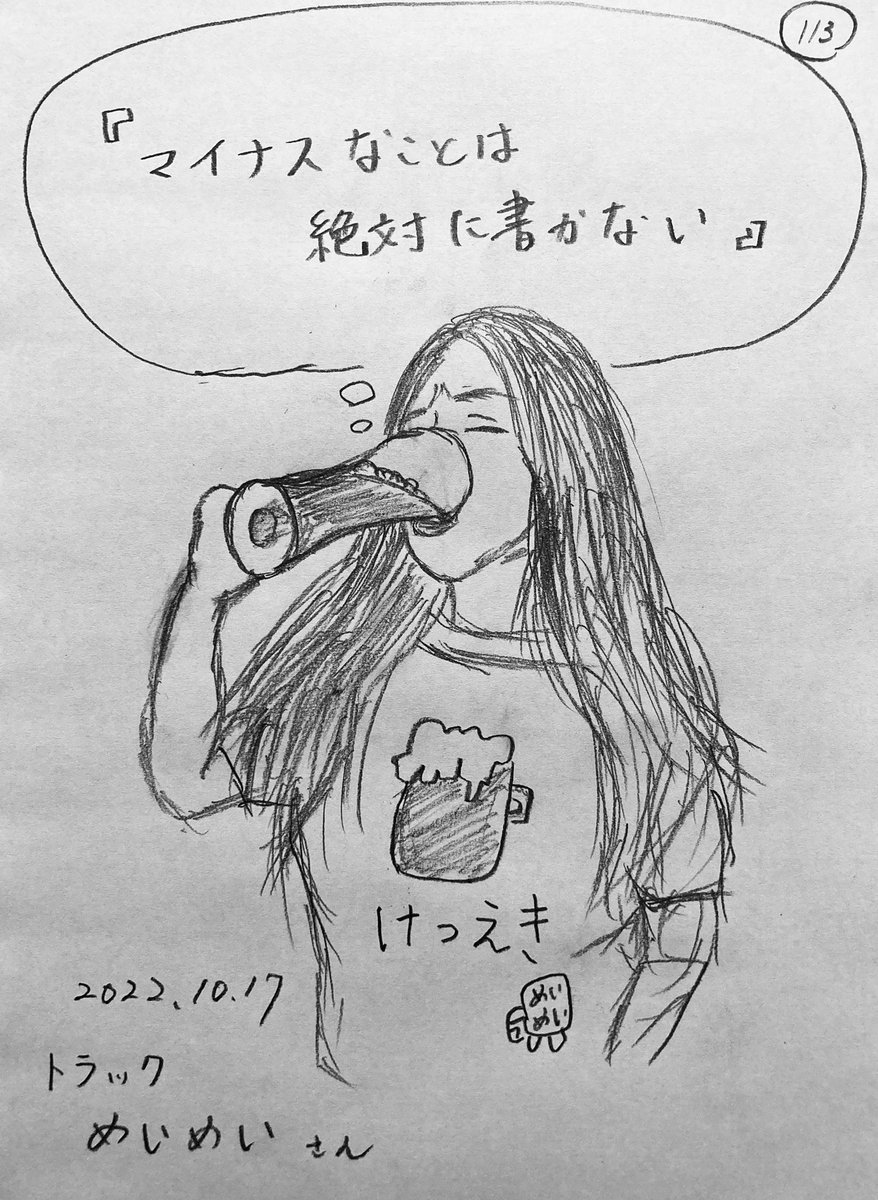 113
『マイナスなことは
絶対に書かない』
けつえき
めい
めい
2022.10.17
トラック
めいめいさん